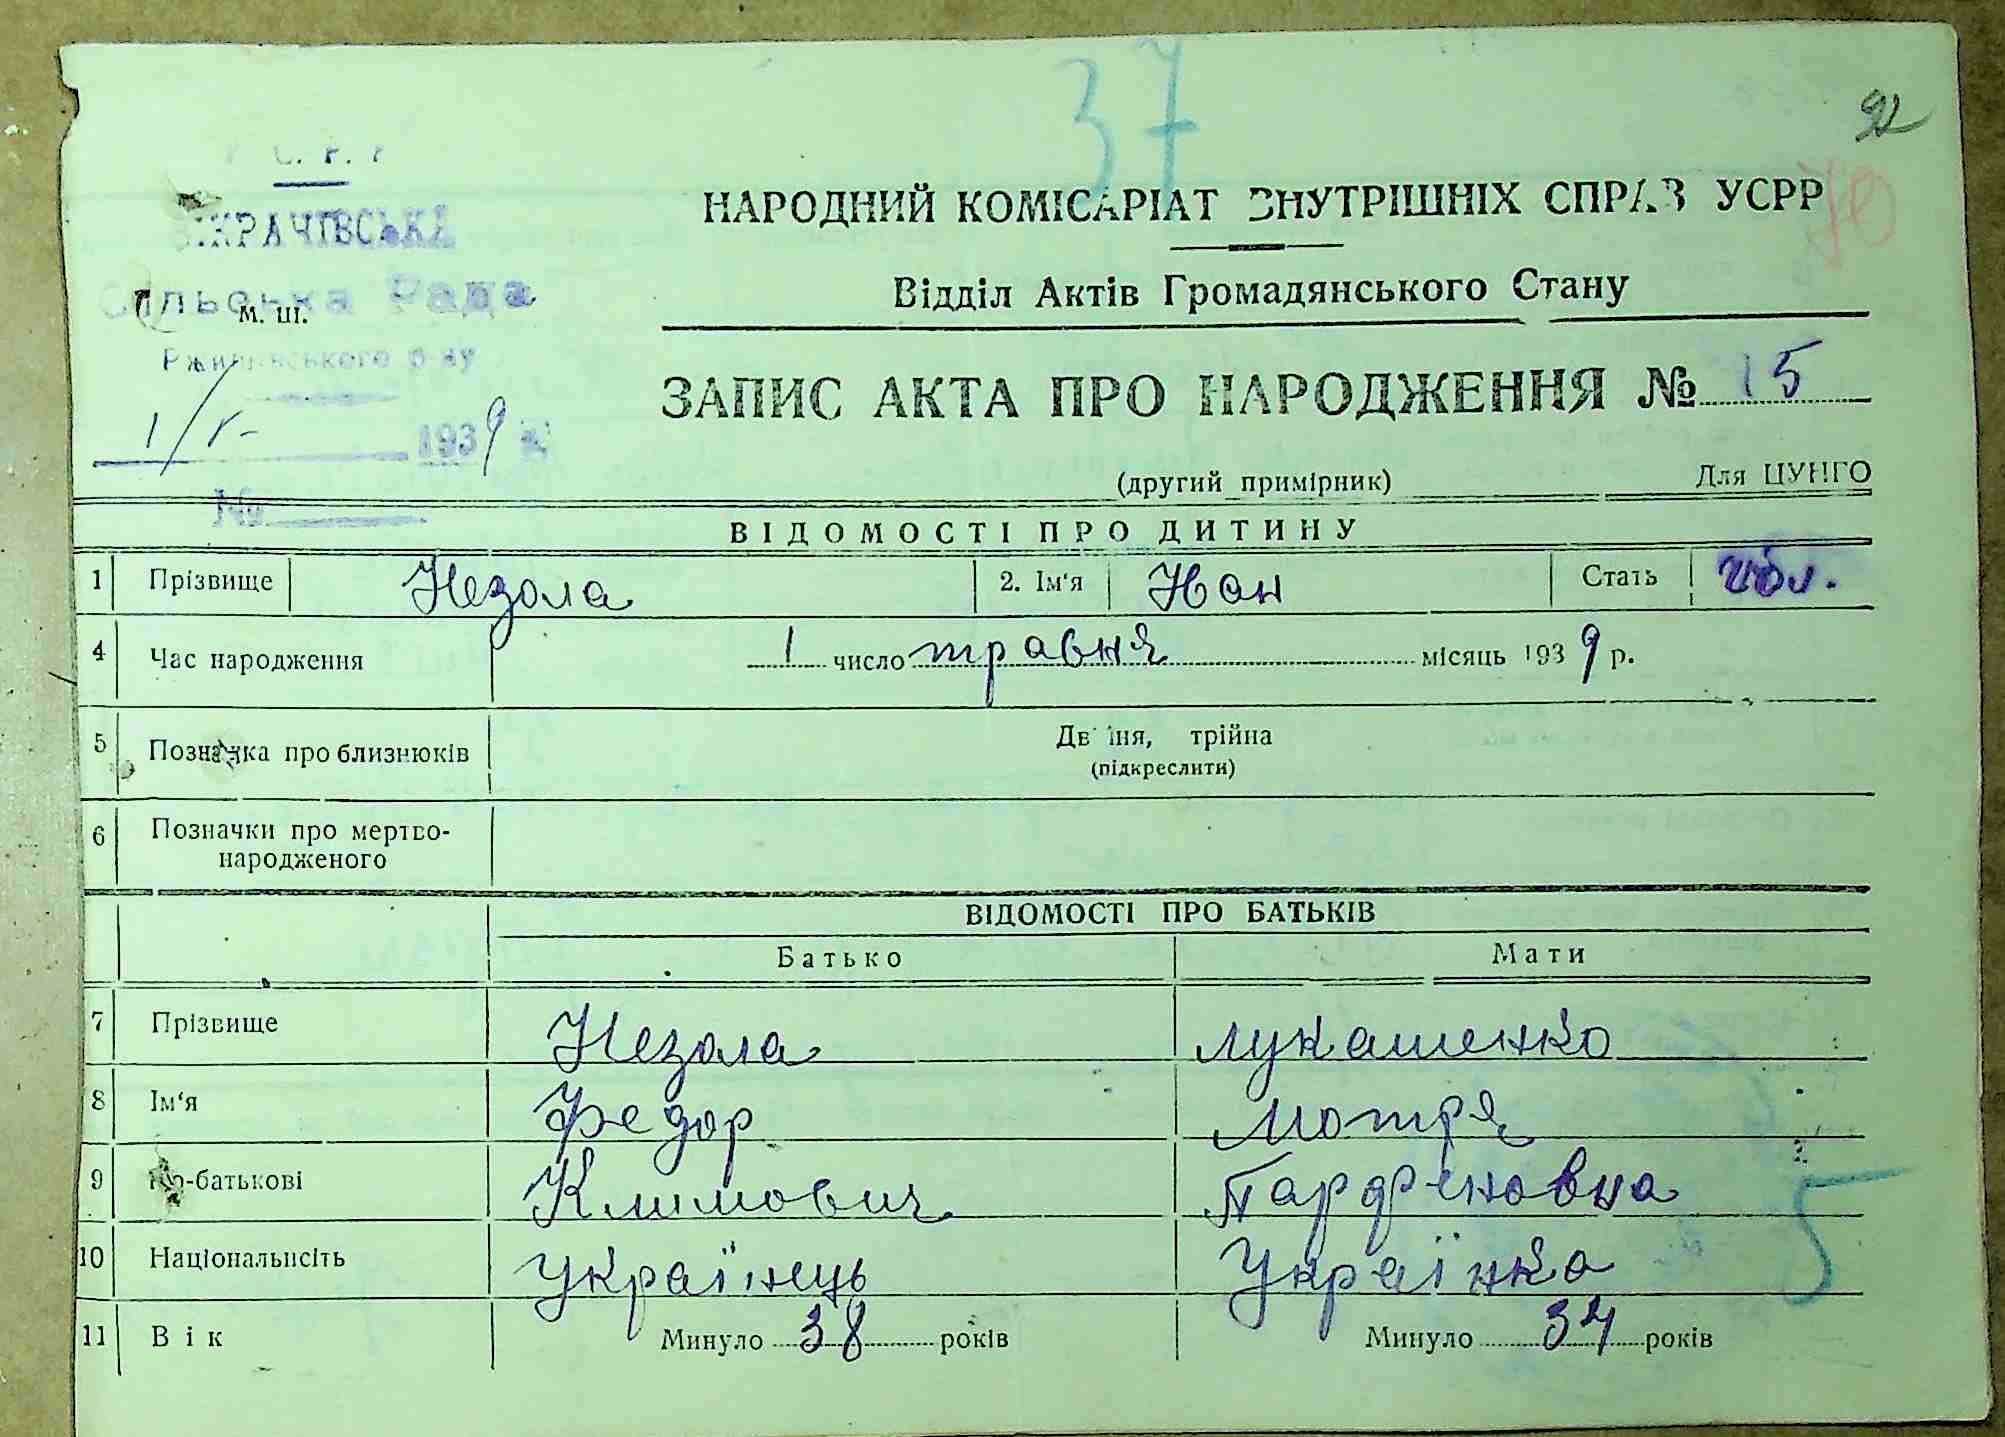 37
НАРОДНИЙ КОМІСАРІАТ ВНУТРІШНІХ СПРАВ УСРР
Відділ Актів Громадянського Стану
Сільська Рада
м. ш.
Ржищівського р-ну
1/V- 1939
№
ЗАПИС АКТА ПРО НАРОДЖЕННЯ № 15
(другий примірник) Для ЦУНГО
ВІДОМОСТІ ПРО ДИТИНУ
1 Прізвище Незола 2. Ім'я Стать
4 Час народження 1 число травня місяць 1939 р.
5 Позначка про близнюків Двійня, трійна
(підкреслити)
6 Позначки про мертво-
народженого
ВІДОМОСТІ ПРО БАТЬКІВ
Батько Мати
7 Прізвище Незола Лукашенко
8 Ім'я Федор Мотря
9 По-батькові Климович Парфеновна
10 Національнсіть Українець Українка
5
11 Вік Минуло 38 років Минуло 34 років